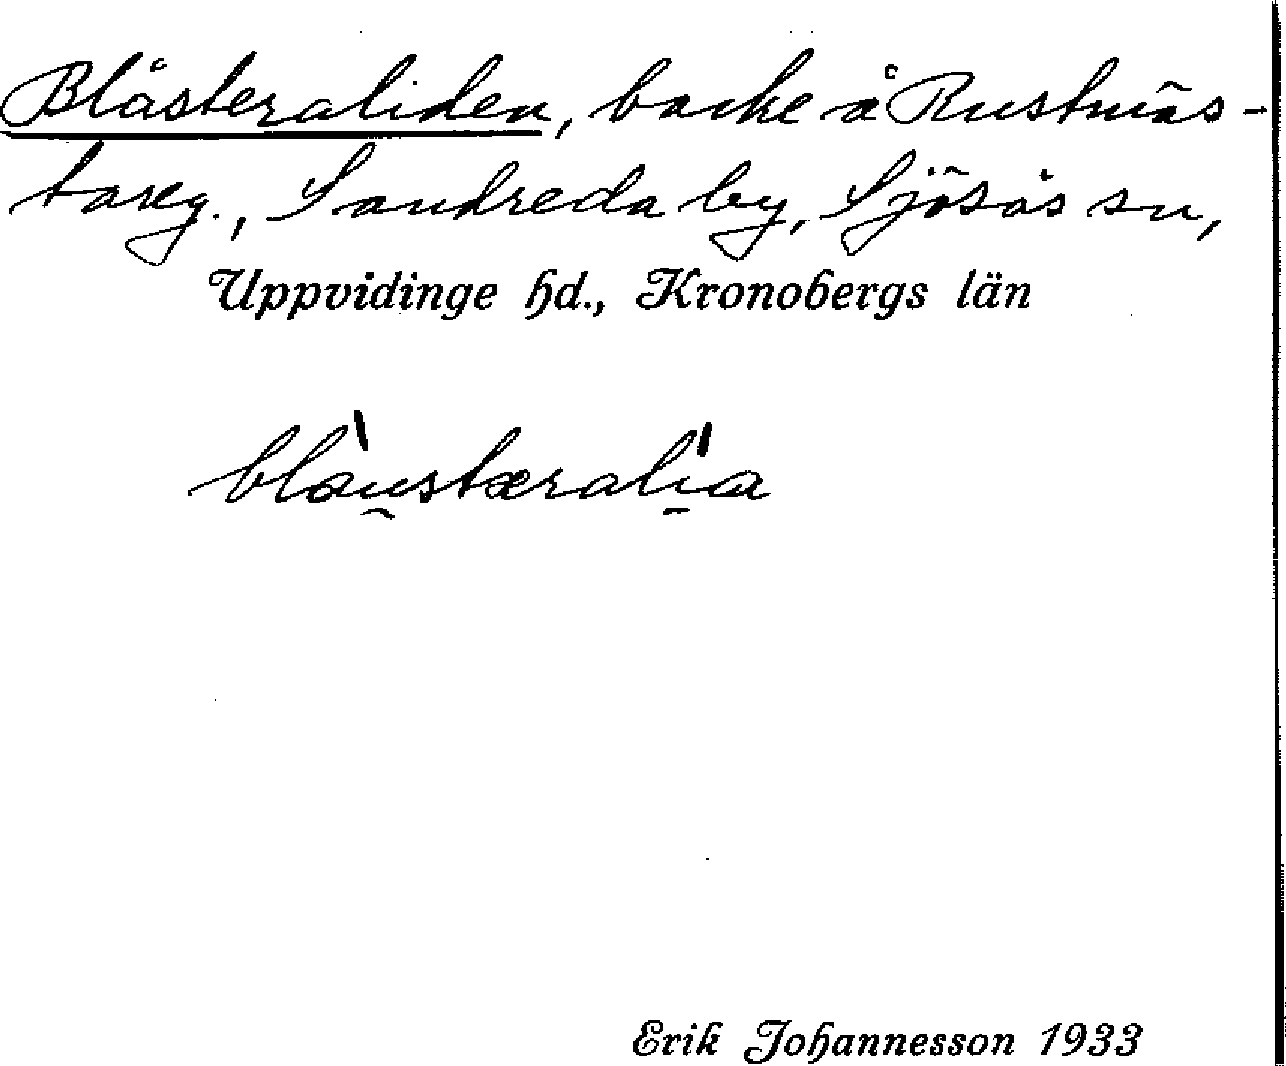 Blåsteraliden, backe å Rustnäs-
tareg., Sandreda by, Sjösås sn,
Uppvidinge hd., Kronobergs län
blàu̯stæralí̠a
Erik Johannesson 1933